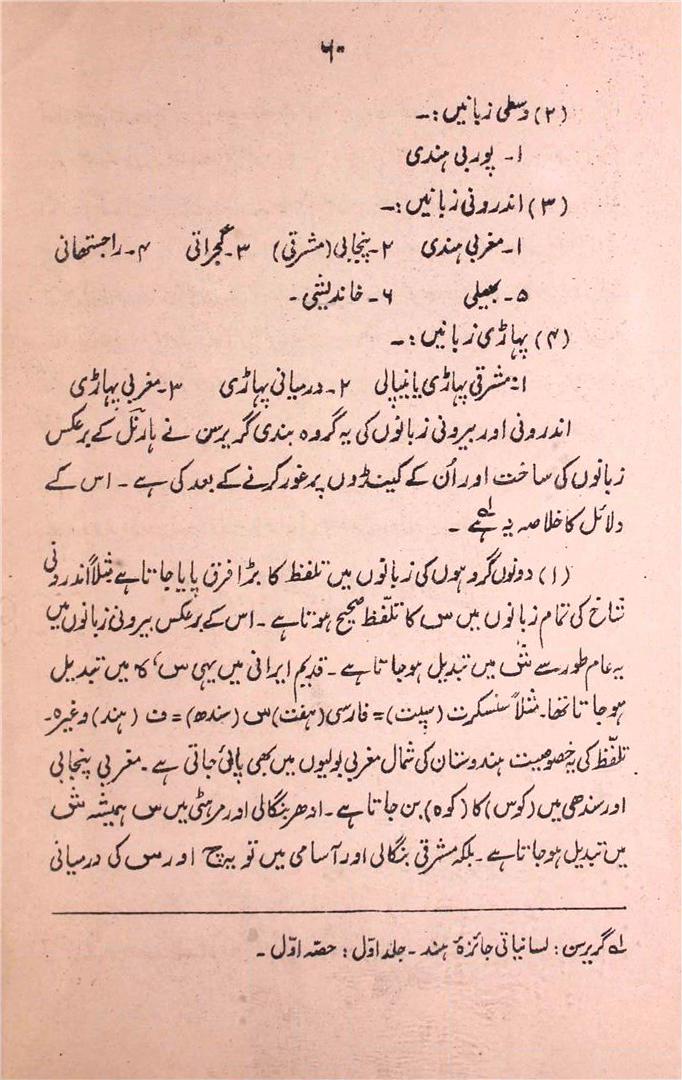 ۶۰
(۲) وسطی زبانیں :۔
۱۔ پوربی ہندی
(۳) اندرونی زبانیں :۔
۱۔ مغربی ہندی ۲۔ پنجابی (مشرقی) ۳۔ گجراتی ۴۔ راجستھانی
۵۔ بھیلی ۶۔ خاندیشی ۔
(۴) پہاڑی زبانیں :۔
۱۔ مشرقی پہاڑی یا نیپالی ۲۔ درمیانی پہاڑی ۳۔ مغربی پہاڑی
اندرونی اور بیرونی زبانوں کی یہ گروہ بندی گریرسن نے ہارنل کے برعکس
زبانوں کی ساخت اور اُن کے کینڈوں پر غور کرنے کے بعد کی ہے ۔ اس کے
دلائل کا خلاصہ یہ ہے ۱؎ ۔
(۱) دونوں گروہوں کی زبانوں میں تلفظ کا بڑا فرق پایا جاتا ہے مثلاً اندرونی
شاخ کی تمام زبانوں میں س کا تلفّظ صحیح ہوتا ہے ۔ اس کے برعکس بیرونی زبانوں میں
یہ عام طور سے ش میں تبدیل ہو جاتا ہے ۔ قدیم ایرانی میں یہی س، ہ میں تبدیل
ہو جاتا تھا۔ مثلاً سنسکرت (سپت) = فارسی (ہفت) س (سندھ) = ف (ہند) وغیرہ۔
تلفّظ کی یہ خصوصیت ہندوستان کی شمال مغربی بولیوں میں بھی پائی جاتی ہے ۔ مغربی پنجابی
اور سندھی میں (کوس) کا (کوہ) بن جاتا ہے ۔ ادھر بنگالی اور مرہٹی میں س ہمیشہ ش
میں تبدیل ہو جاتا ہے ۔ بلکہ مشرقی بنگالی اور آسامی میں تو یہ چ اور س کی درمیانی
۱؎ گریرسن : لسانیاتی جائزۂ ہند ۔ جلد اوّل : حصّہ اوّل ۔